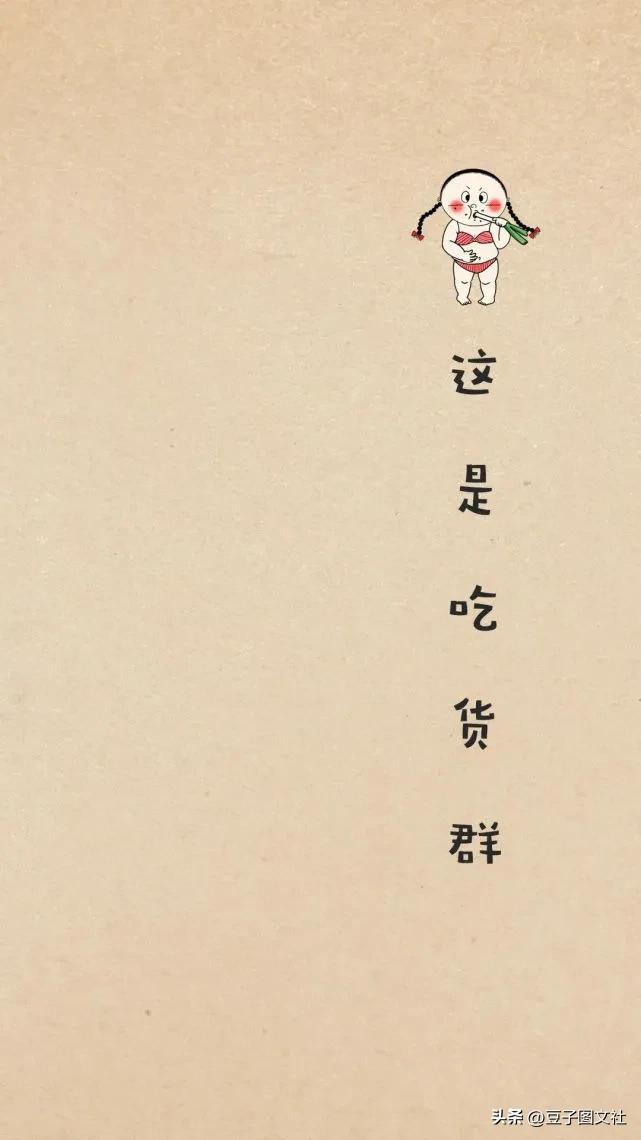 这是吃货群
头条 @豆子图文社